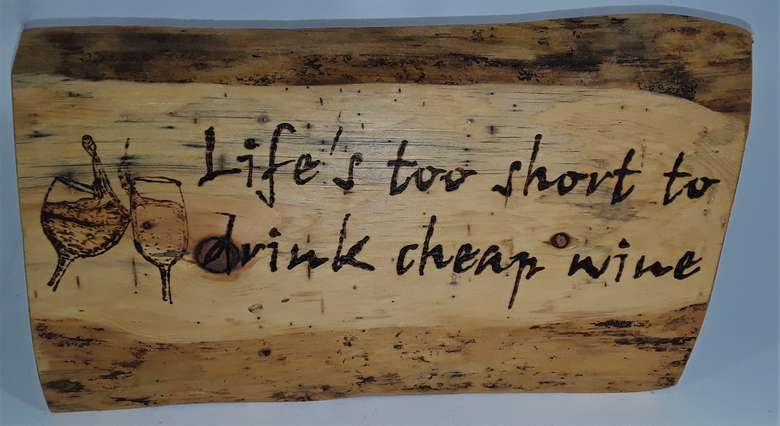 Life's too short to
drink cheap wine